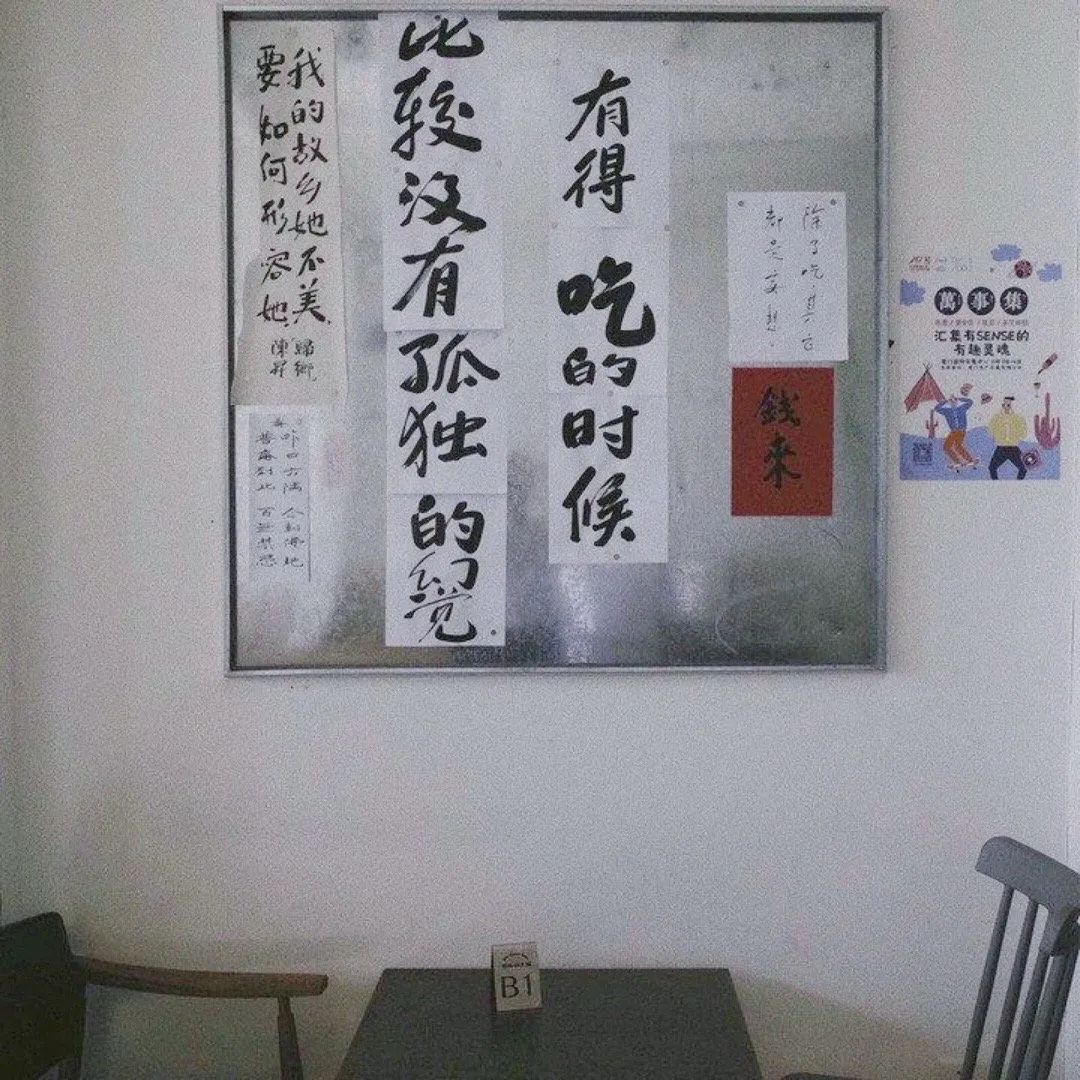 除了吃其它
都是妄想
錢來
有得吃的时候
比较没有孤独的幻觉
我的故乡她不美
要如何形容她
歸鄉
陳昇
萬事集
汇集有SENSE的
有趣灵魂
B1